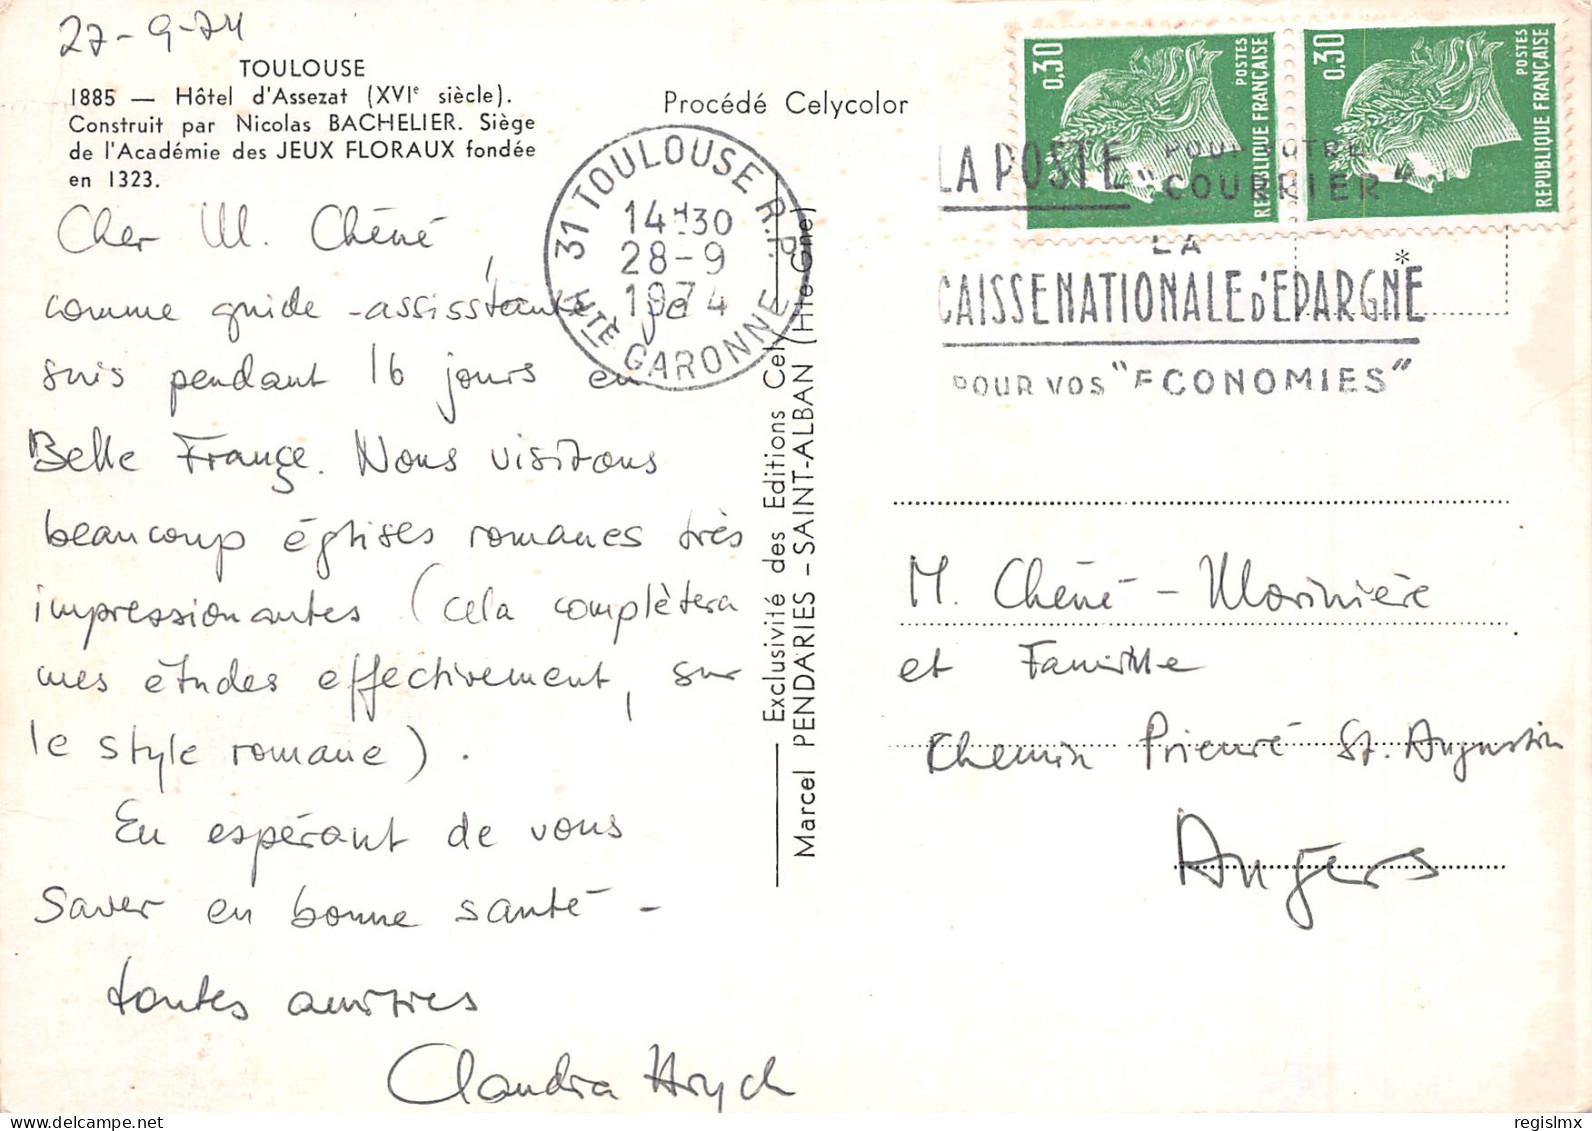 27-9-74
TOULOUSE
1885 — Hôtel d'Assezat (XVIe siècle).
Construit par Nicolas BACHELIER. Siège
de l'Académie des JEUX FLORAUX fondée
en 1323.
Procédé Celycolor
Cher M. Chéné
comme guide-assisstante je
suis pendant 16 jours en
Belle France. Nous visitons
beaucoup églises romanes très
impressionantes (cela complètera
mes études effectivement, sur
le style romane).
En espérant de vous
saver en bonne santé -
toutes amitiés
Claudia
31 TOULOUSE R.P.
14H30
28-9
1974
HTE GARONNE
0,30
POSTES
REPUBLIQUE FRANÇAISE
0,30
POSTES
REPUBLIQUE FRANÇAISE
LA POSTE POUR VOTRE
"COURRIER"
LA
CAISSE NATIONALE D'EPARGNE
POUR VOS "ECONOMIES"
*
Exclusivité des Editions Cely
Marcel PENDARIES - SAINT-ALBAN (Hte-Gne)
M. Chéné - Morinière
et Famille
Chemin Prieuré St. Augustin
Angers
regislmx